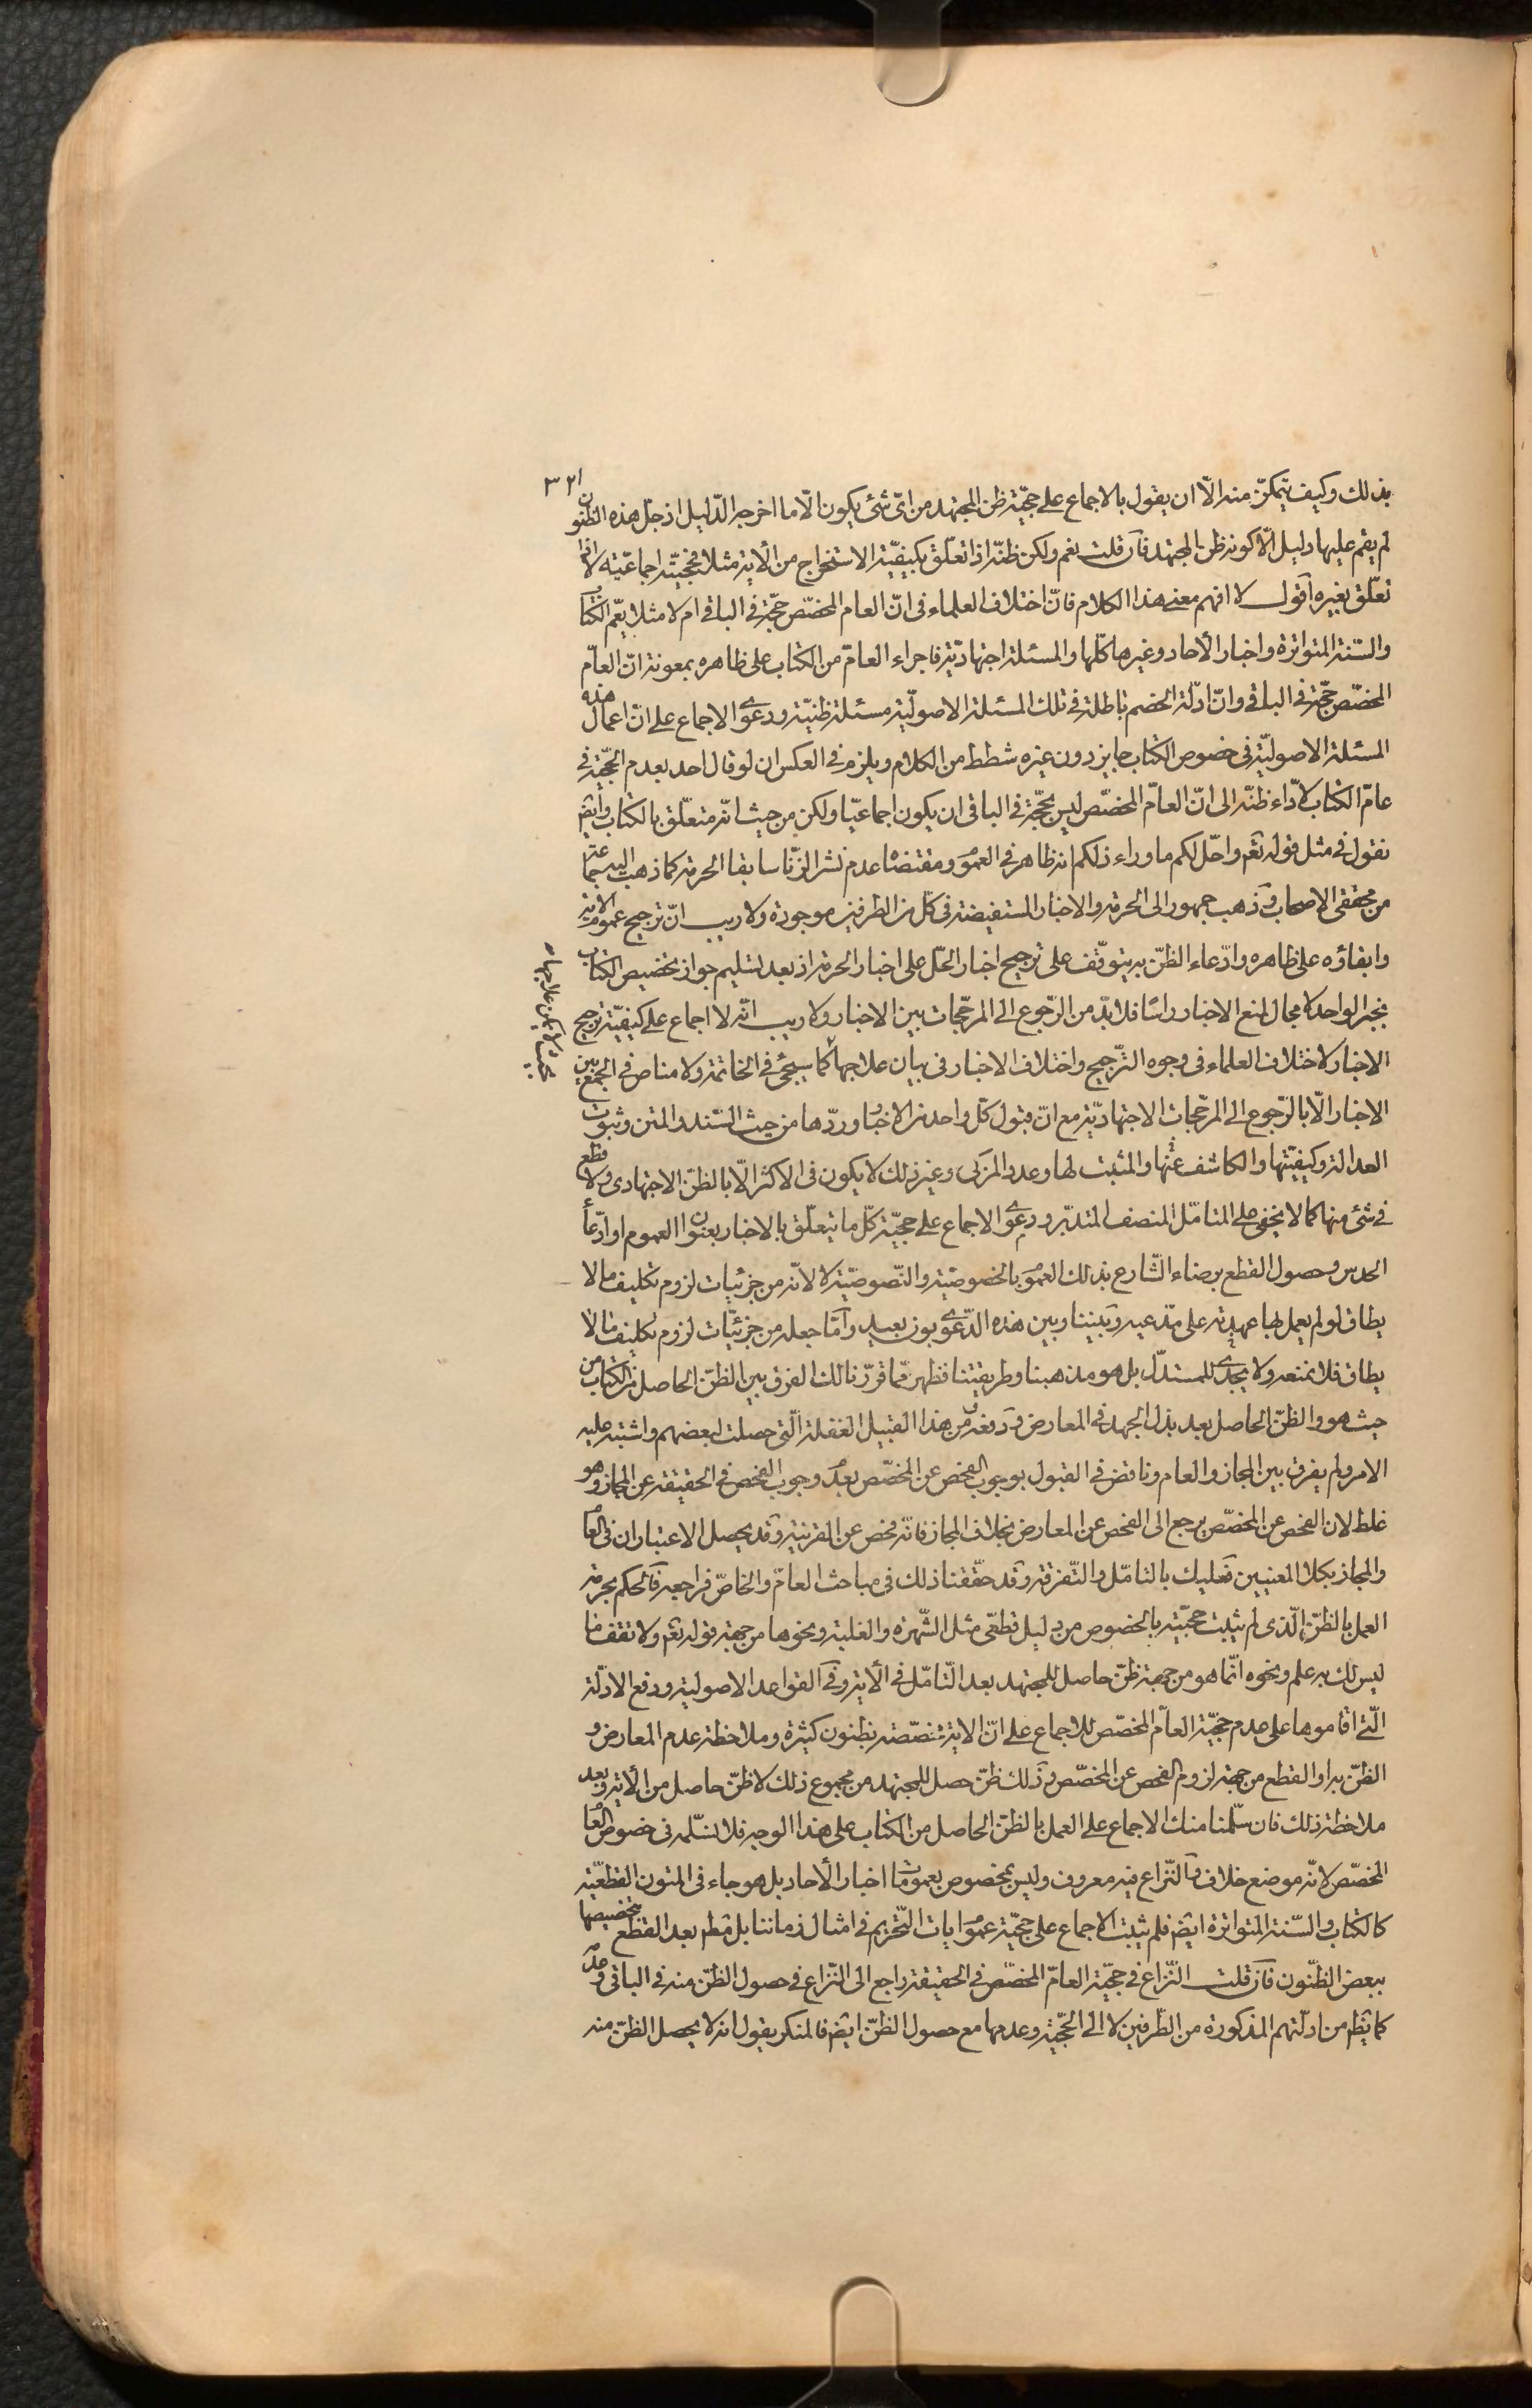 ٣٢١
بذلك وكيف يتمكّن منه الّا ان يقول بالاجماع على حجيّة ظن المجتهد من اىّ شئ يكون الّا ما اخرجه الدّليل اذ جلّ هذه الظنون
لم يقم عليها دليل الّا كونه ظن المجتهد فان قلت نعم ولكن ظنّه اذا تعلّق بكيفيّة الاستخراج من الآية مثلا فحجيّته اجماعيّة لا اذا
تعلّق بغيره اقول لا افهم معنى هذا الكلام فانّ اختلاف العلماء فى انّ العام المخصّص حجّة فى الباقى ام لا مثلا يعمّ الكتاب
والسّنة المتواترة واخبار الآحاد وغيرها كلّها والمسئلة اجتهاديّة فاجراء العامّ من الكتاب على ظاهره بمعونة انّ العامّ
المخصّص حجّة فى الباقى وانّ ادلّة الخصم باطلة فى تلك المسئلة الاصوليّة مسئلة ظنيّة ودعوى الاجماع على انّ اعمال هذه
المسئلة الاصوليّة فى خصوص الكتاب جايز دون غيره شطط من الكلام ويلزم فى العكس ان لو قال احد بعدم الحجّية فى
عامّ الكتاب لاداء ظنّه الى انّ العامّ المخصّص ليس بحجّة فى الباقى ان يكون اجماعيّا ولكن من حيث انّه متعلّق بالكتاب وايضا
نقول فى مثل قوله تعم واحّل لكم ما وراء ذلكم انه ظاهر فى العموم ومقتضاه عدم نشر الزّنا سابقا الحرمة كما ذهب اليه جماعة
من محققى الاصحاب وذهب جمهور الى الحرمة والاخبار المستفيضة فى كل من الطرفين موجودة ولا ريب انّ ترجيح عموم الآية
وابقاؤه على ظاهره وادّعاء الظنّ به يتوقّف على ترجيح اخبار الحّل على اخبار الحرمة اذ بعد تسليم جواز تخصيص الكتاب
بخبر الواحد لا مجال لمنع الاخبار راسًا فلا بدّ من الرّجوع الى المرجّحات بين الاخبار ولا ريب انّه لا اجماع على كيفيّة ترجيح
الاخبار لاختلاف العلماء فى وجوه التّرجيح واختلاف الاخبار فى بيان علاجها كما سيجئ فى الخاتمة ولا مناص فى الجمع بين
بحيث لا يمكن علاجها
الاخبار الّا بالرّجوع الى المرجّحات الاجتهاديّة مع انّ قبول كلّ واحد من الاخبار وردّها من حيث السّند والمتن وثبوت
العدالة وكيفيّتها والكاشف عنها والمثبت لها وعدد المزكى وغير ذلك لا يكون فى الاكثر الّا بالظنّ الاجتهادى ولا قطع
فى شئ منها كما لا يخفى على المتامّل المنصف المتدبّر ودعوى الاجماع على حجيّة كلّ ما يتعلّق بالاخبار بعنوان العموم او ادّعاء
الحدس وحصول القطع برضاء الشّارع بذلك العموم بالخصوصيّة والنّصوصيّة لا لانّه من جزئيات لزوم تكليف ما لا
يطاق لو لم يعمل بها عهدته على مدّعيه وبيننا وبين هذه الدّعوى بون بعيد وامّا جعله من جزئيّات لزوم تكليف ما لا
يطاق فلا نمنعه ولا يجدى للمستدلّ بل هو مذهبنا وطريقتنا فظهر ممّا قرّرنا لك الفرق بين الظنّ الحاصل من الكتاب من
حيث هو والظنّ الحاصل بعد بذل الجهد فى المعارض ودفعه ومن هذا القبيل الغفلة الّتى حصلت لبعضهم واشتبه عليه
الامر ولم يفرق بين المجاز والعام وناقض فى القبول بوجوب الفحص عن المخصّص بعدم وجوب الفحص فى الحقيقة عن المجاز وهو
غلط لان الفحص عن المخصّص يرجع الى الفحص عن المعارض بخلاف المجاز فانّه فحص عن القرينة وقد يحصل الاعتباران فى العام
والمجاز بكلا المعنيين فعليك بالتامّل والتّفرقة وقد حقّقنا ذلك فى مباحث العامّ والخاصّ فراجعه فالحكم بحرمة
العمل بالظنّ الّذى لم يثبت حجيّته بالخصوص من دليل قطعّى مثل الشّهرة والغلبة ونحوها من جهة قوله تعم ولا تقف ما
ليس لك به علم ونحوه انّما هو من جهة ظنّ حاصل للمجتهد بعد التّامّل فى الآية وفى القواعد الاصولية ودفع الادلّة
الّتى اقاموها على عدم حجيّة العامّ المخصّص للاجماع على انّ الآية متخصّصة بظنون كثيرة وملاحظة عدم المعارض و
الظنّ به او القطع من جهة لزوم الفحص عن المخصّص وذلك ظنّ حصل للمجتهد من مجموع ذلك لا ظنّ حاصل من الآية وبعد
ملاحظة ذلك فان سلّمنا منك الاجماع على العمل بالظنّ الحاصل من الكتاب على هذا الوجه فلا نسلّمه فى خصوص العام
المخصّص لانّه موضع خلاف والنّزاع فيه معروف وليس بمخصوص بعمومات اخبار الآحاد بل هو جاء فى المتون القطعيّة
كالكتاب والسّنة المتواترة ايضم فلم يثبت الاجماع على حجيّة عموم ايات التّحريم فى امثال زماننا بل مطم بعد القطع بتخصيصها
ببعض الظنّون فان قلت النّزاع فى حجيّة العامّ المخصّص فى الحقيقة راجع الى النّزاع فى حصول الظنّ منه فى الباقى وعدمه
كما يظهر من ادلّتهم المذكورة من الطّرفين لا الى الحجّية وعدمها مع حصول الظنّ ايضم فالمنكر يقول انه لا يحصل الظنّ منه